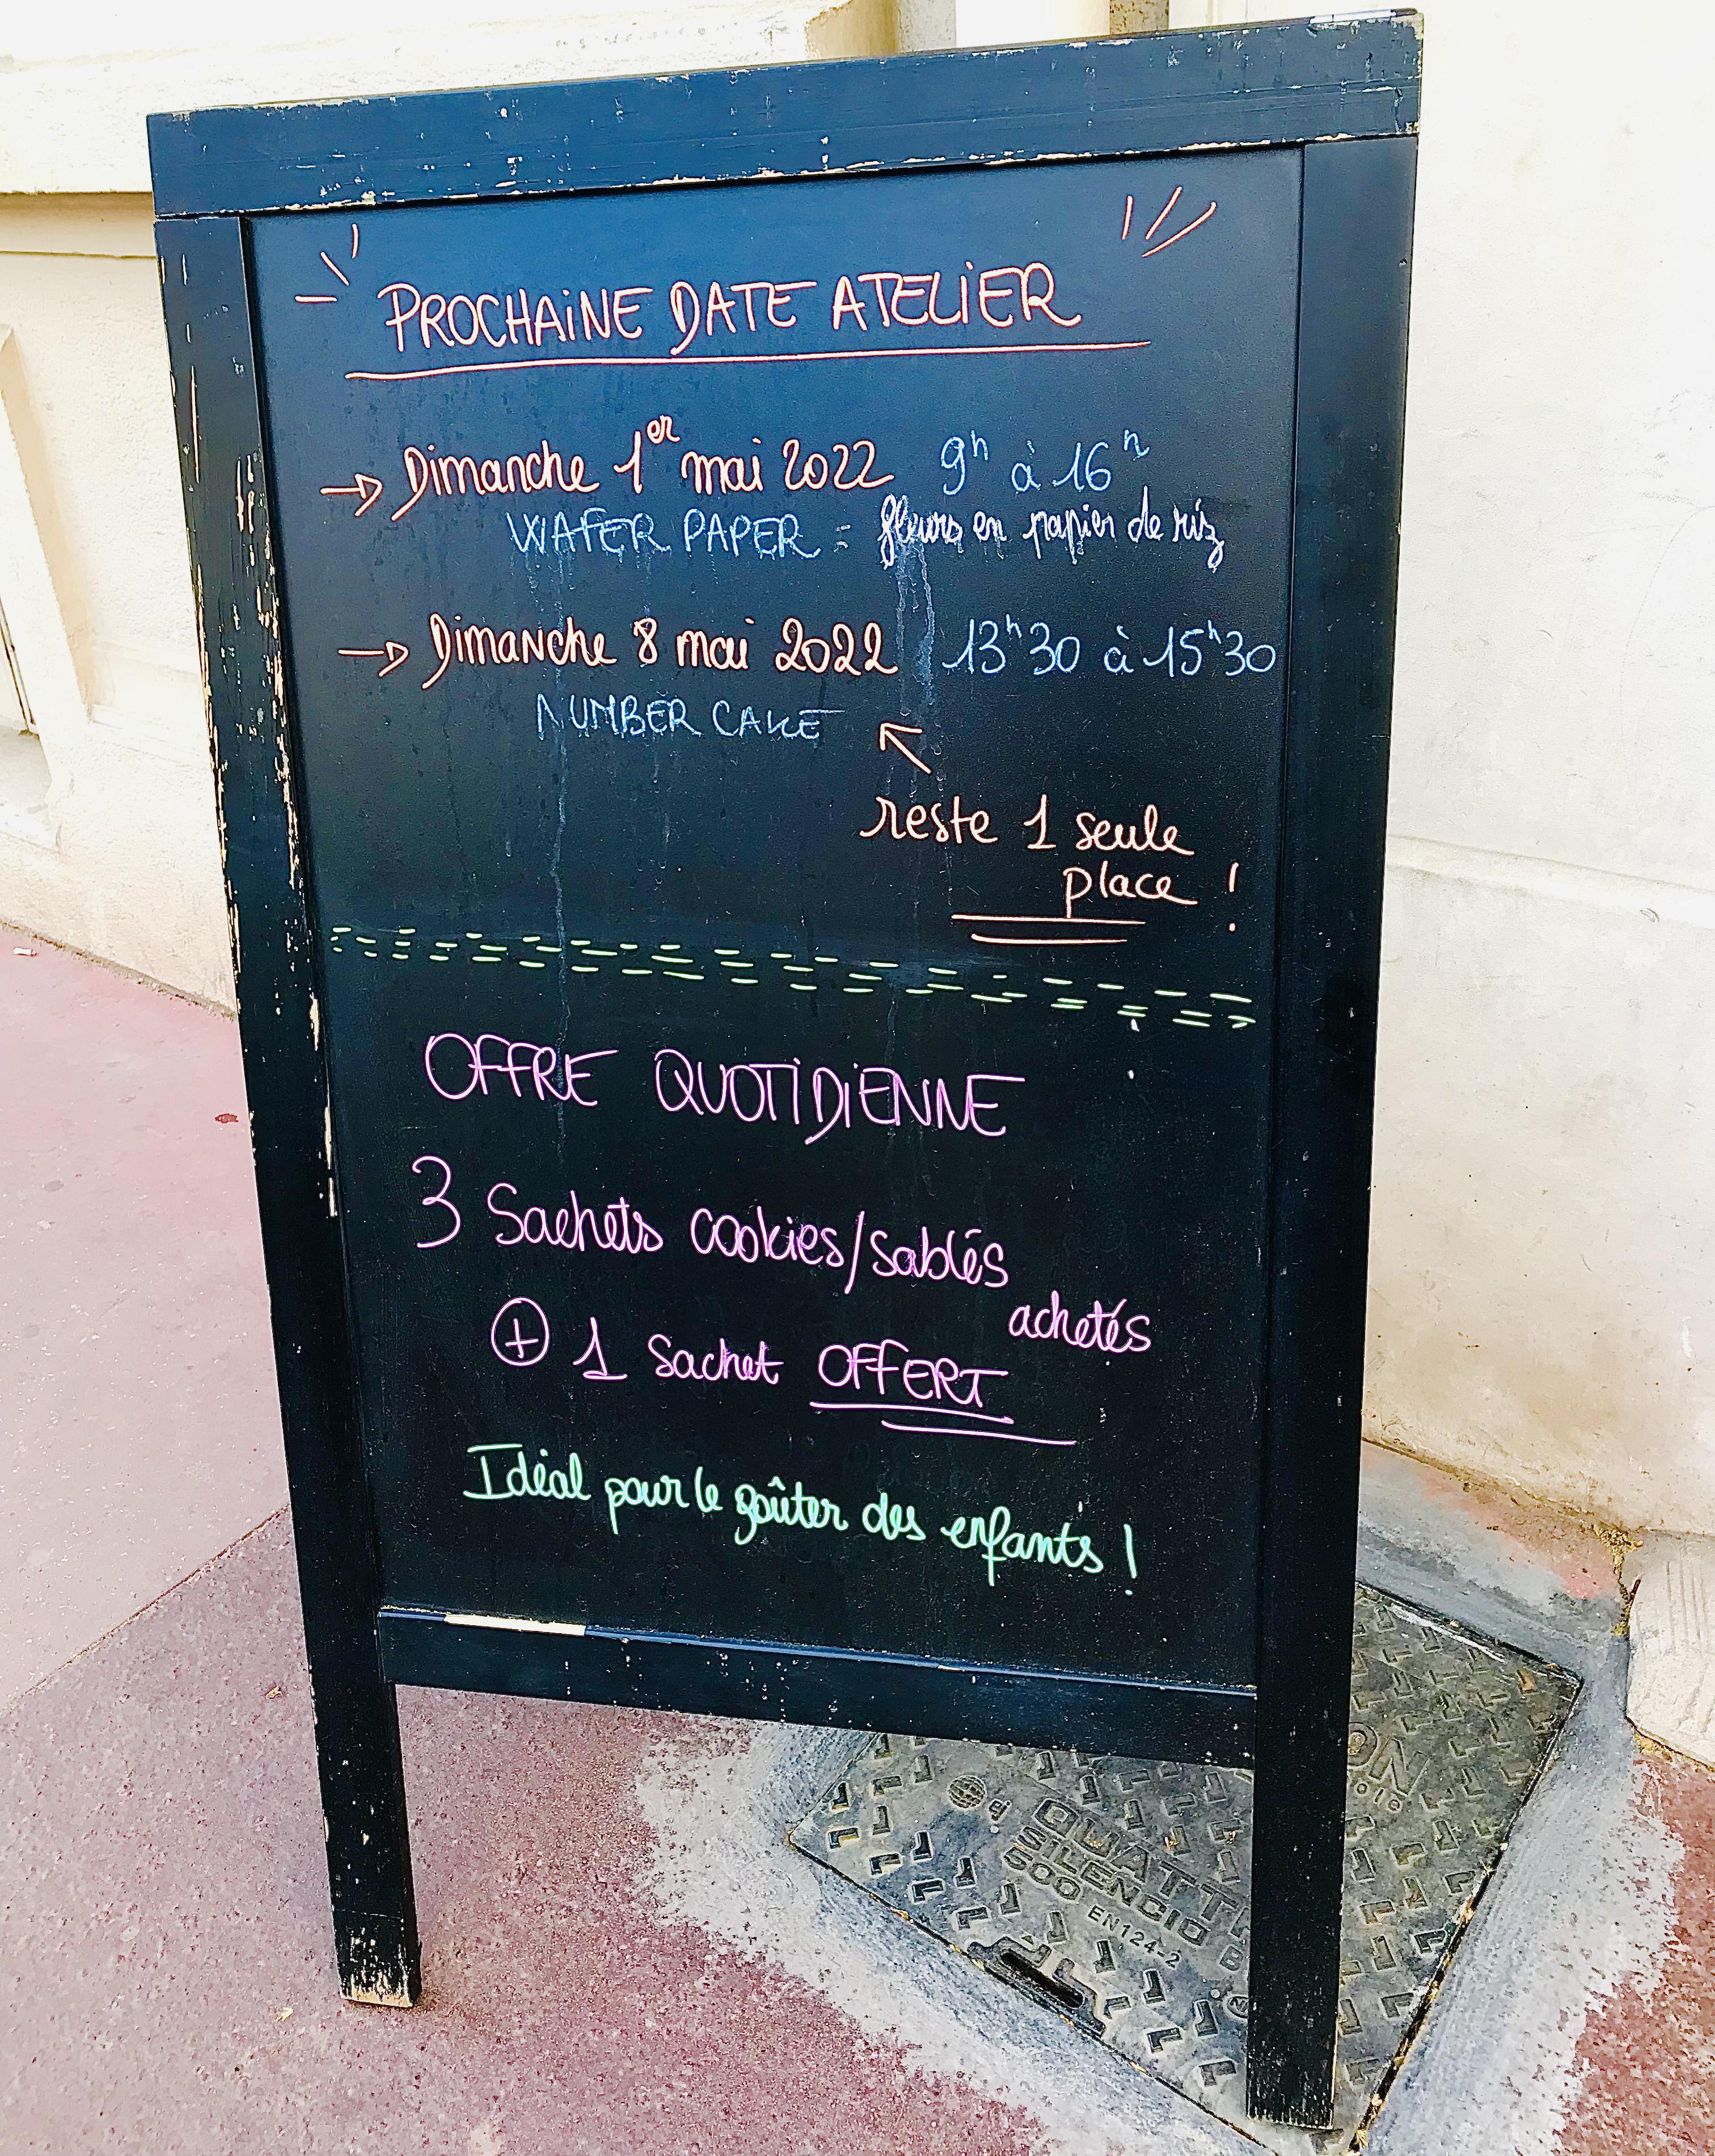 PROCHAINE DATE ATELIER
→ Dimanche 1er mai 2022 9h à 16h
WAFER PAPER = fleurs en papier de riz
→ Dimanche 8 mai 2022 13h30 à 15h30
NUMBER CAKE
reste 1 seule
place !
OFFRE QUOTIDIENNE
3 Sachets cookies/sablés
achetés
+ 1 Sachet OFFERT
Idéal pour le goûter des enfants !
QUATTR
SILENCIO
500 EN124-2